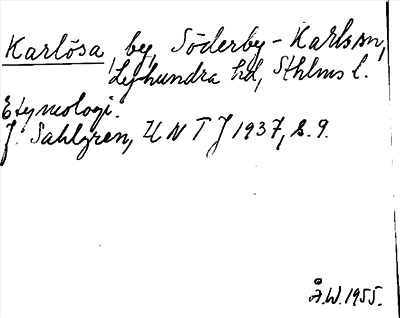 Karlösa by, Söderby-Karls sn,
Lyhundra hd, Sthlms l.
Etymologi.
J. Sahlgren, UNT J 1937, s. 9.
Å.W. 1955.